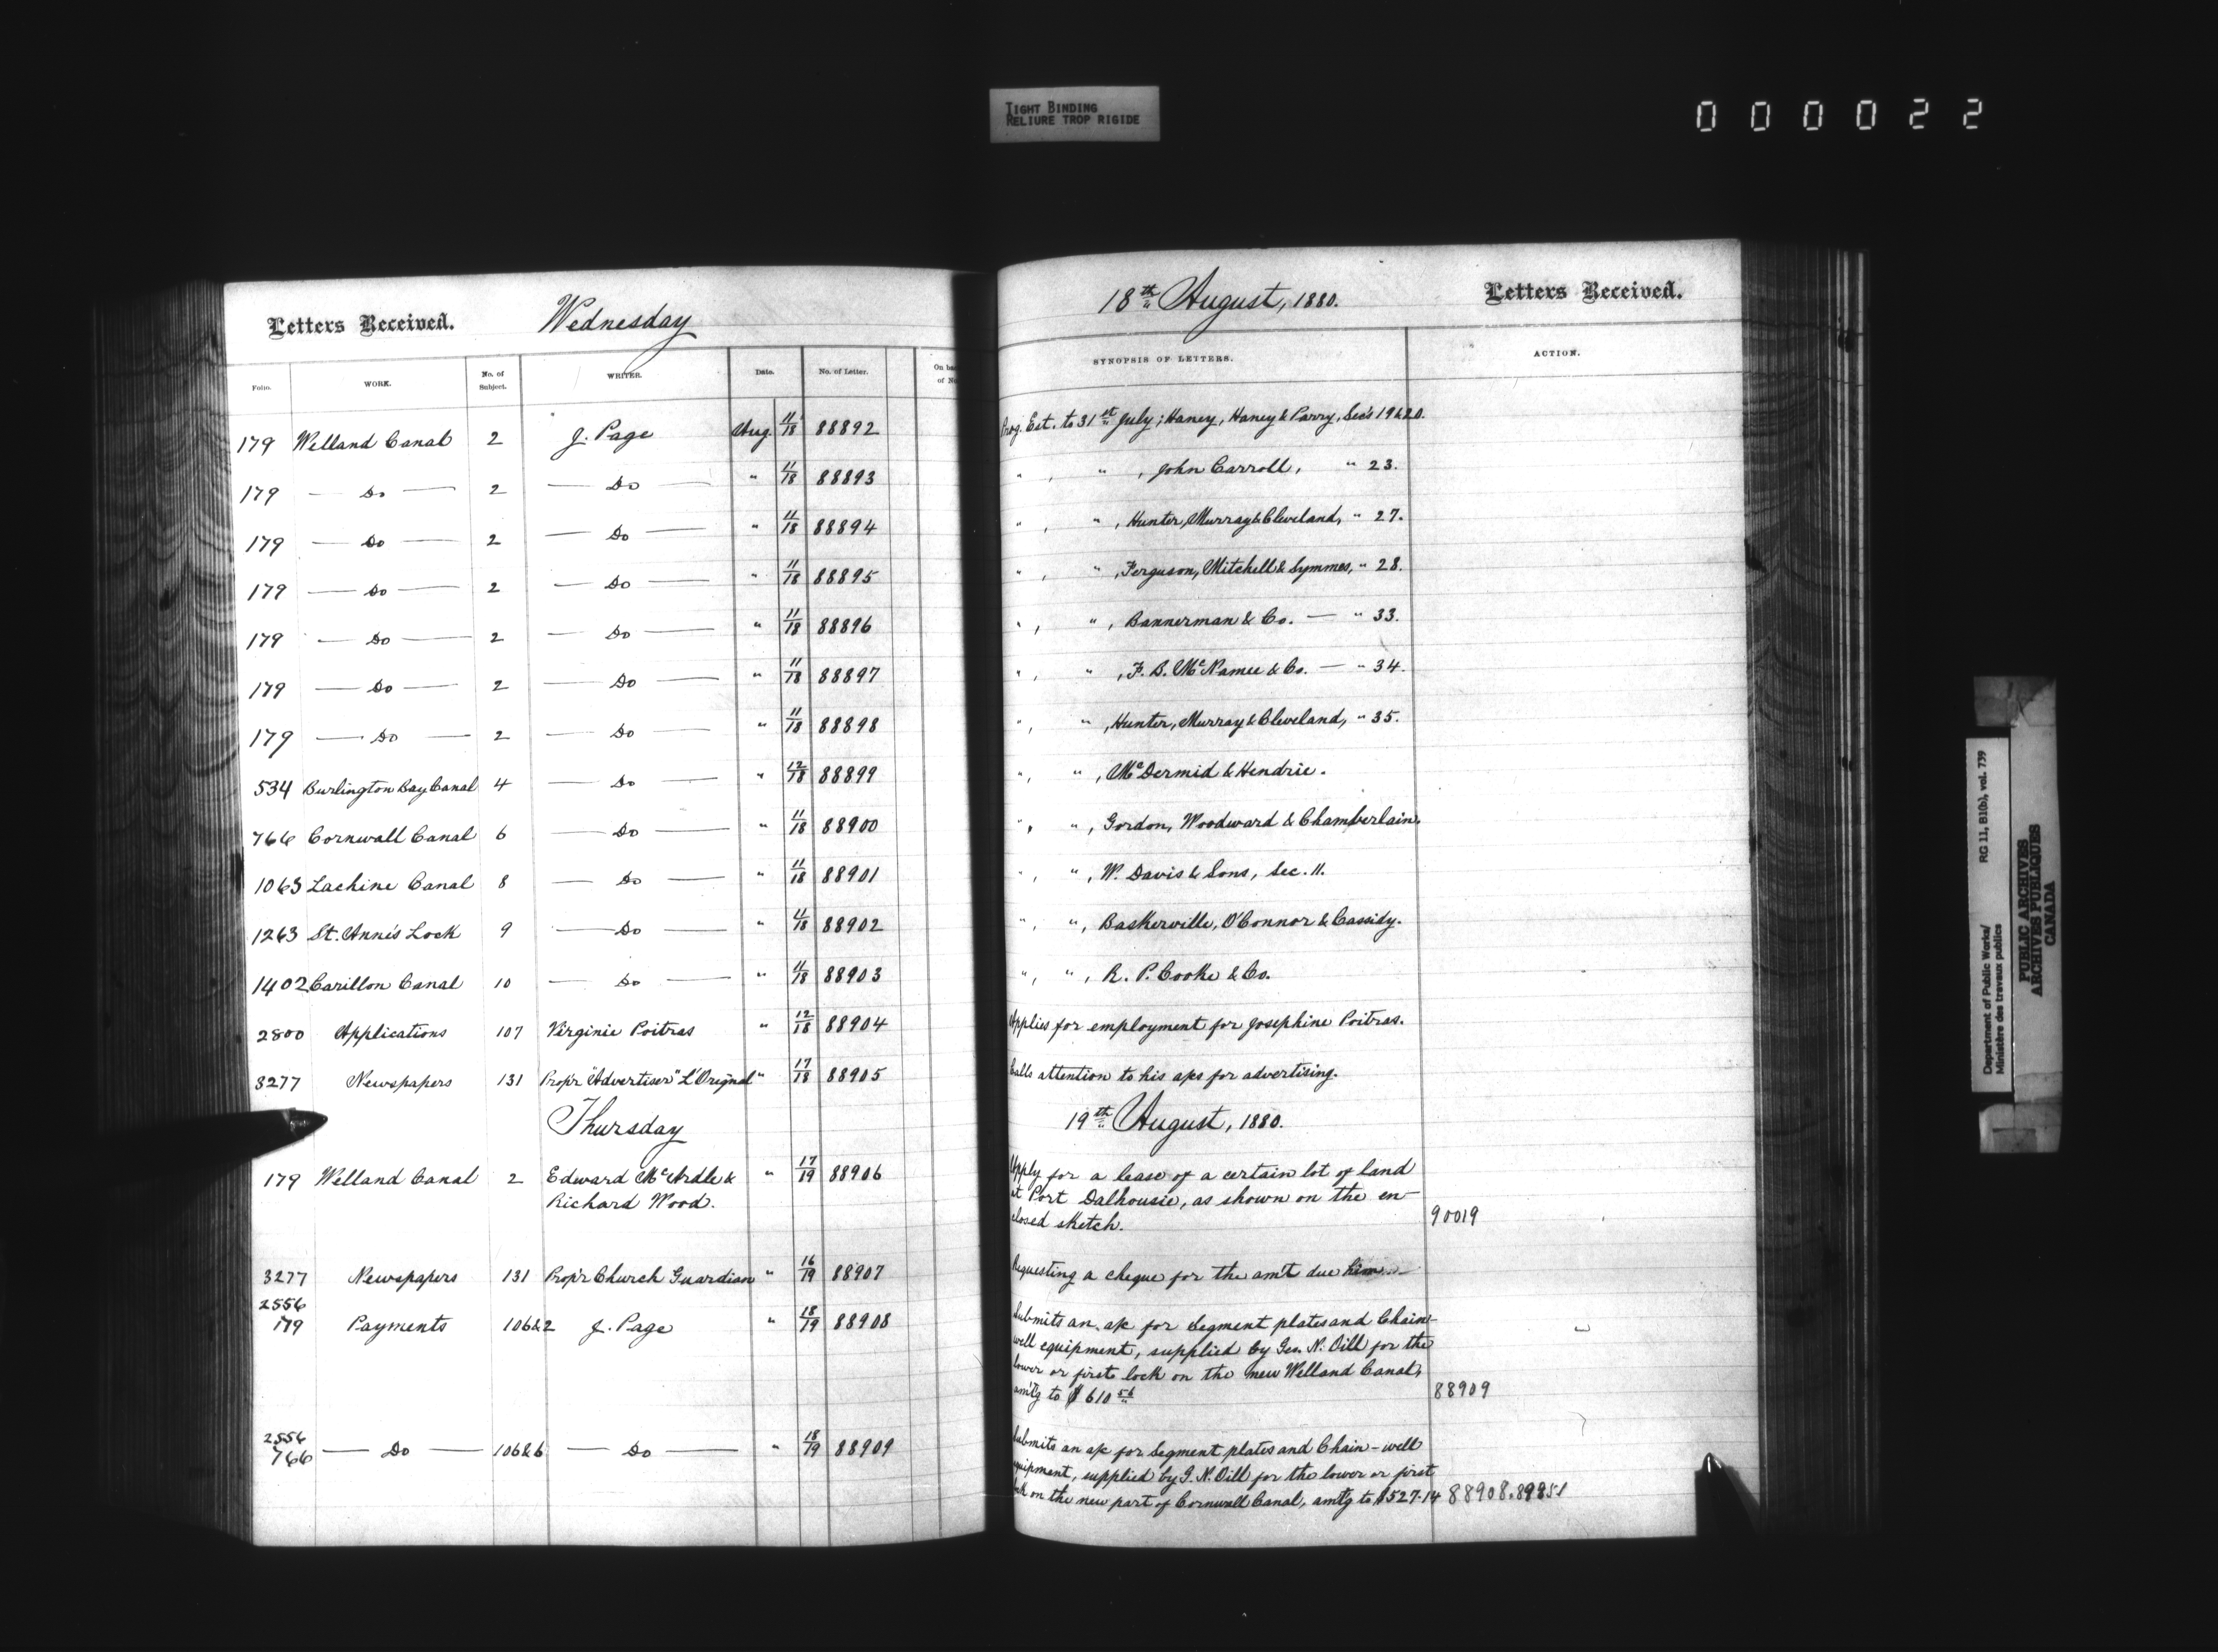 TIGHT BINDING
RELIURE TROP RIGIDE
000022
Letters Received. Wednesday
Folio. WORK. No. of Subject. WRITER. Date. No. of Letter. On ba of No
179 Welland Canal 2 J. Page Aug. 11/18 88892
179 — Do — 2 — Do — " 11/18 88893
179 — Do — 2 — Do — " 11/18 88894
179 — Do — 2 — Do — " 11/18 88895
179 — Do — 2 — Do — " 11/18 88896
179 — Do — 2 — Do — " 11/18 88897
179 — Do — 2 — Do — " 11/18 88898
534 Burlington Bay Canal 4 — Do — " 12/18 88899
766 Cornwall Canal 6 — Do — " 11/18 88900
1063 Lachine Canal 8 — Do — " 11/18 88901
1263 St. Anne's Lock 9 — Do — " 11/18 88902
1402 Carillon Canal 10 — Do — " 11/18 88903
2800 Applications 107 Virginie Poitras " 12/18 88904
3277 Newspapers 131 Prop'r "Advertiser" L'Orignal " 17/18 88905
Thursday
179 Welland Canal 2 Edward McArdle & " 17/19 88906
Richard Wood.
3277 Newspapers 131 Prop'r Church Guardian " 16/19 88907
2556
179 Payments 106&2 J. Page " 18/19 88908
2556
766 — Do — 106&6 — Do — " 18/19 88909
18th August, 1880. Letters Received.
SYNOPSIS OF LETTERS. ACTION.
Prog. Est. to 31st July; Haney, Haney & Parry, Sec's 19&20.
" , " , John Carroll, " 23.
" , " , Hunter, Murray & Cleveland, " 27.
" , " , Ferguson, Mitchell & Symmes, " 28.
" , " , Bannerman & Co. — " 33.
" , " , F. B. McNamee & Co. — " 34.
" , " , Hunter, Murray & Cleveland, " 35.
" , " , McDermid & Hendrie.
" , " , Gordon, Woodward & Chamberlain.
" , " , W. Davis & Sons, Sec. 11.
" , " , Baskerville, O'Connor & Cassidy.
" , " , R. P. Cooke & Co.
Applies for employment for Josephine Poitras.
Calls attention to his a/cs for advertising.
19th August, 1880.
Apply for a lease of a certain lot of land
at Port Dalhousie, as shown on the en-
closed sketch. 90019
Requesting a cheque for the am't due him
Submits an a/c for Segment plates and Chain-
well equipment, supplied by Geo. N. Oill for the
lower or first lock on the new Welland Canal,
am'tg to $610 56 88909
Submits an a/c for Segment plates and Chain-well
equipment, supplied by G. N. Oill for the lower or first
lock on the new part of Cornwall Canal, am'tg to $527.14 88908.
Department of Public Works/
Ministère des travaux publics
RG 11, B1(b), vol. 739
PUBLIC ARCHIVES
ARCHIVES PUBLIQUES
CANADA